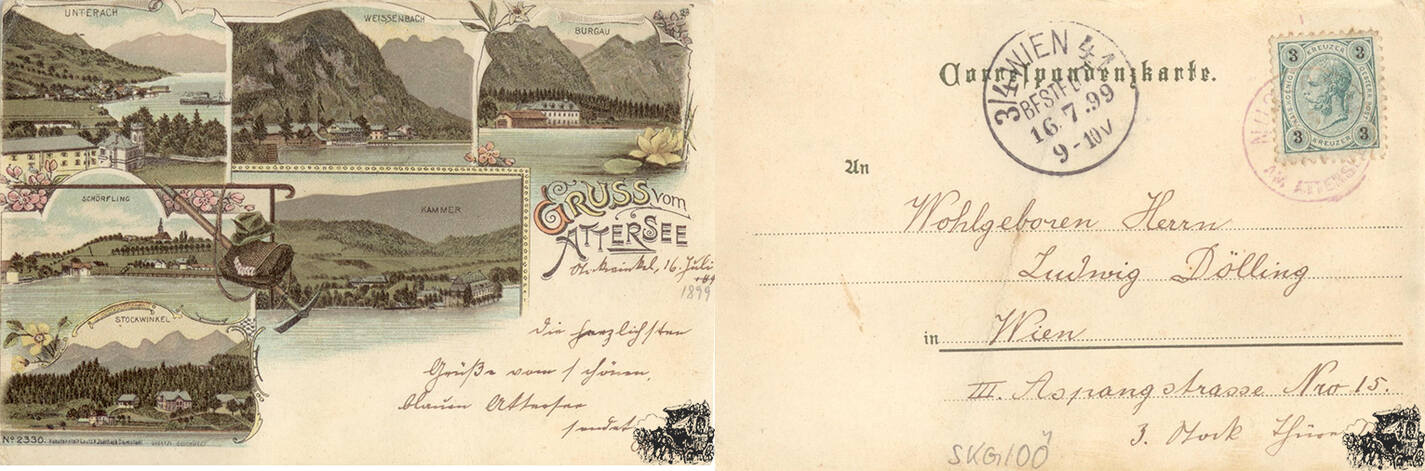 UNTERACH
WEISSENBACH
BURGAU
SCHÖRFLING
KAMMER
GRUSS vom
ATTERSEE
Stockwinkel, 16. Juli
1899
STOCKWINKEL
Die herzlichsten
Grüße vom schönen,
blauen Attersee
sendet
No 2330.
Correspondenzkarte.
3/4 WIEN 4 1
BESTELLT
16. 7. 99
9 - 10 V
3 KREUZER 3
3 KREUZER 3
AM ATTERSEE
An
Wohlgeboren Herrn
Ludwig Dölling
in Wien
III. Aspangstrasse Nro 15.
3. Stock Thüre
SKG100